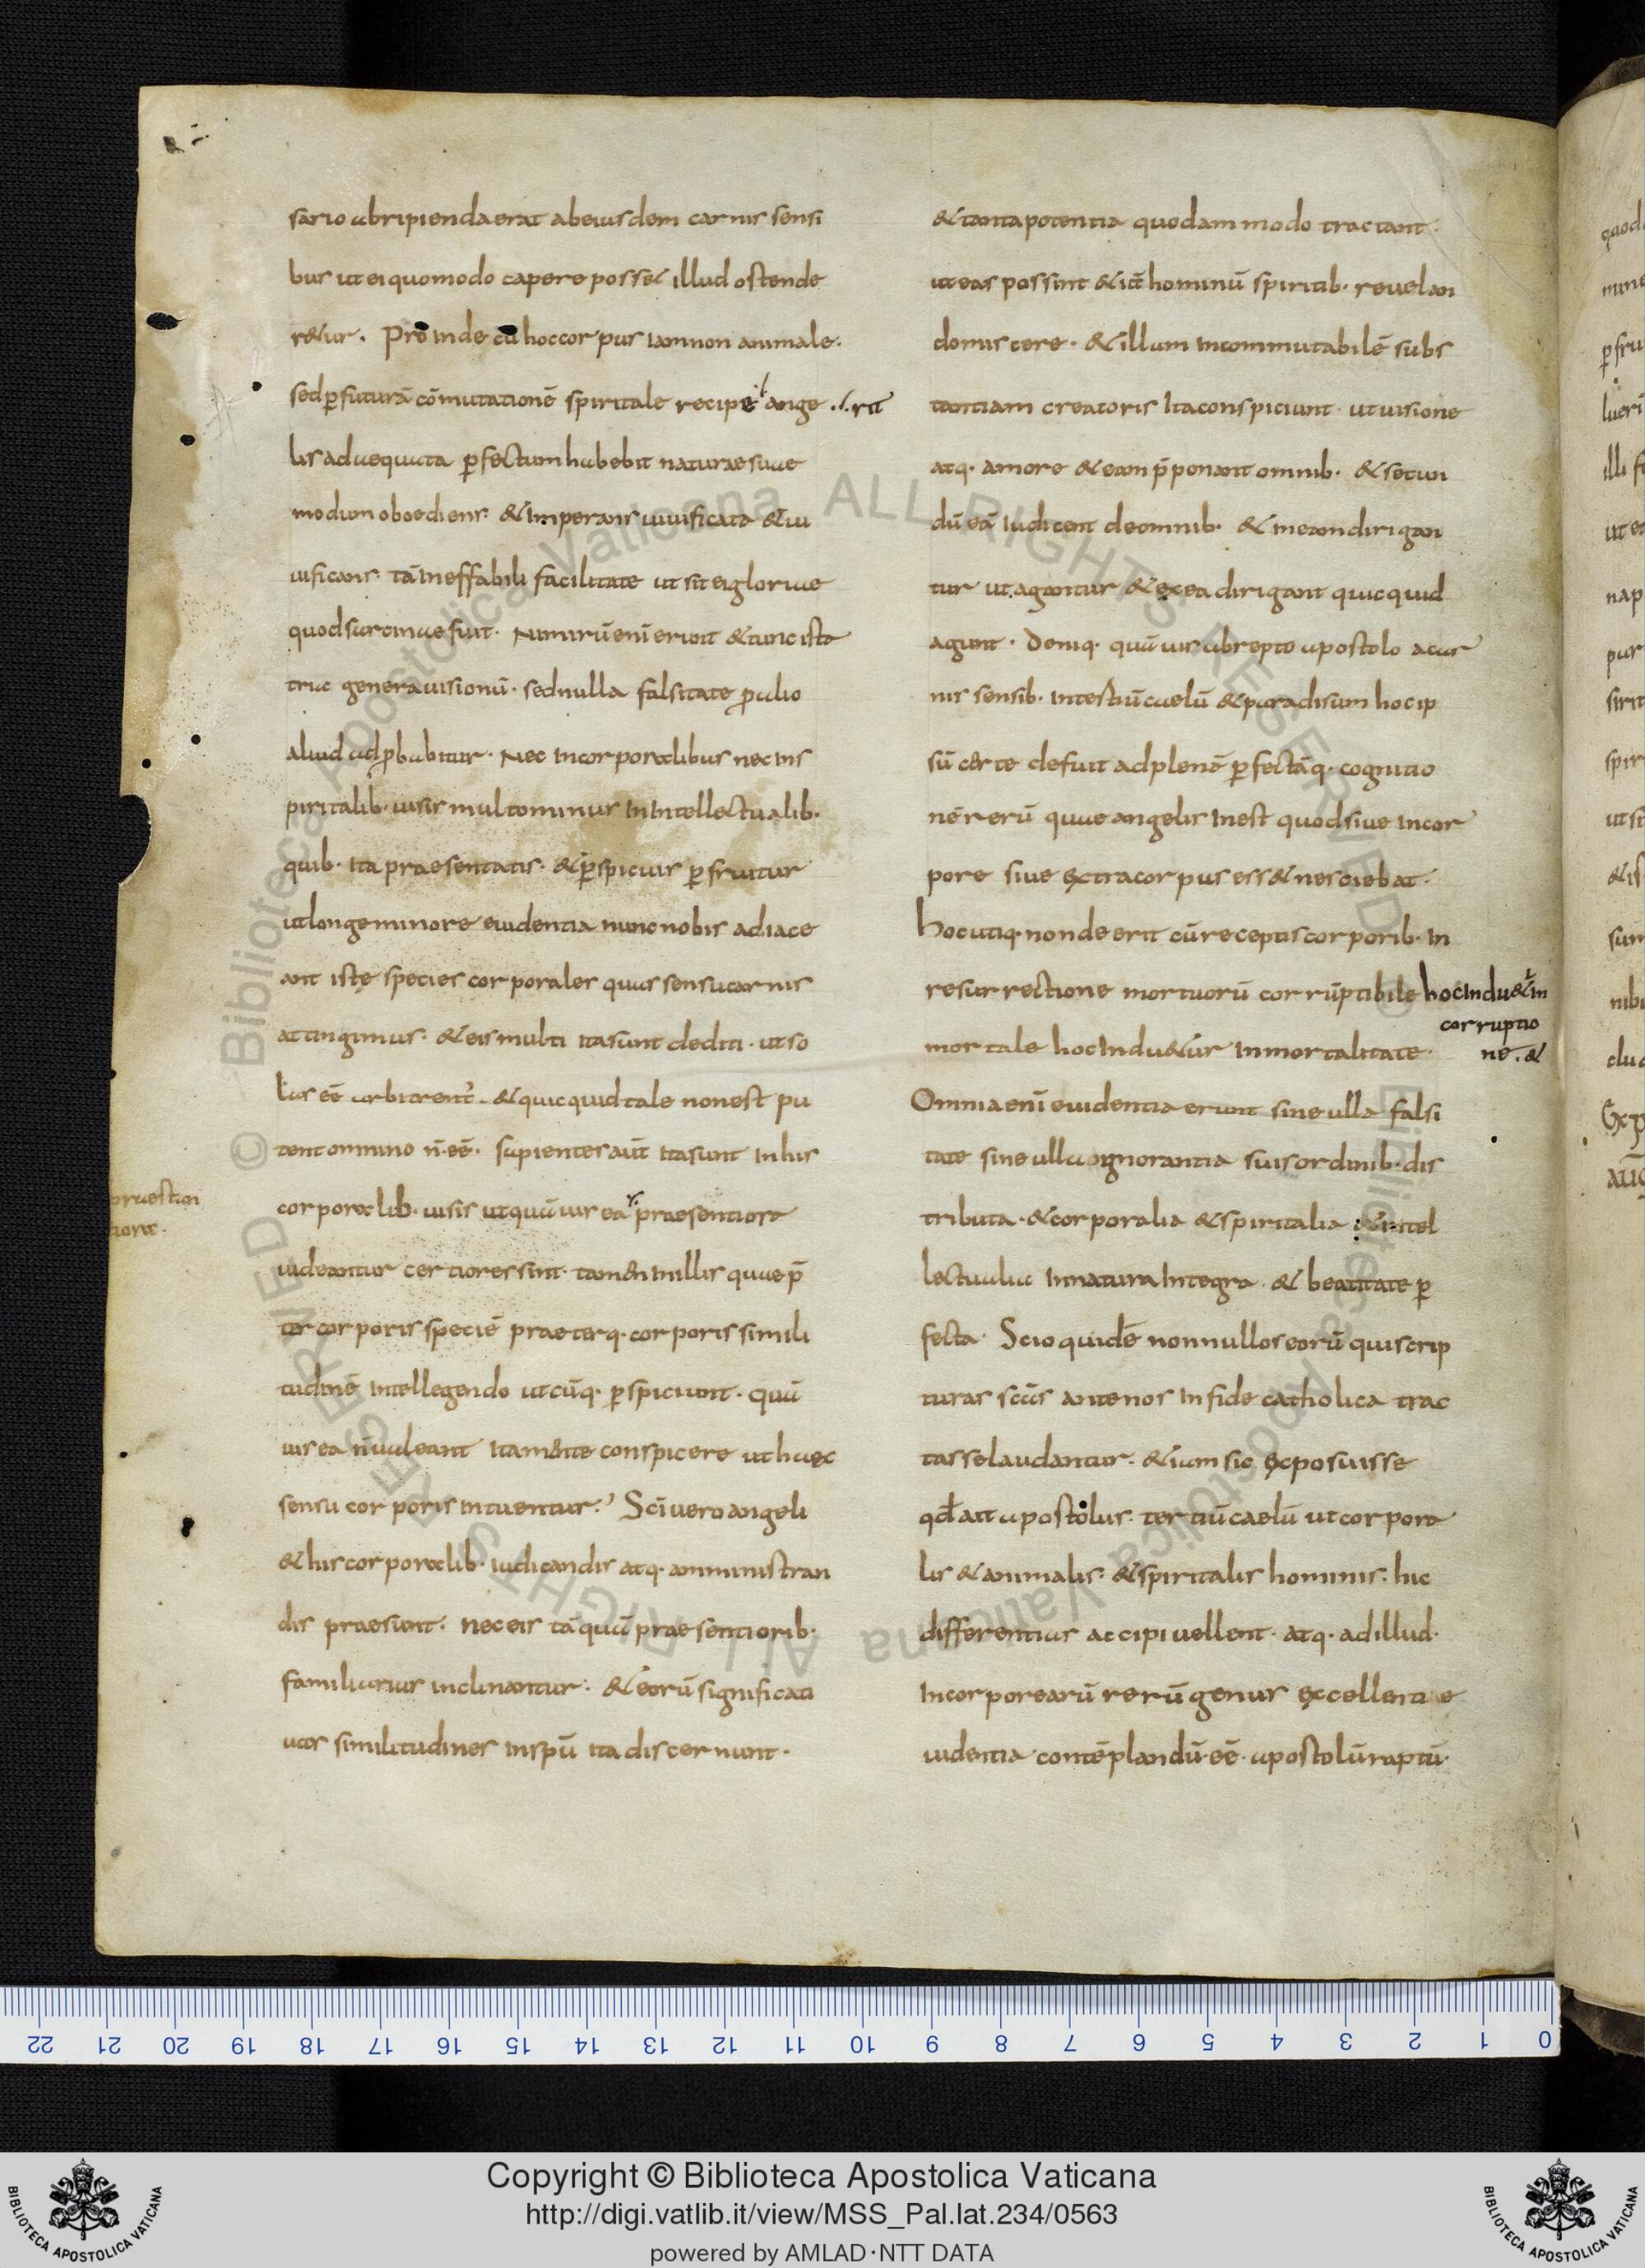 sario abripienda erat ab eiusdem carnis sensi
bus ut ei quomodo capere poss& illud ostende
r&ur. Pro inde cū hoc corpus iam non animale.
sed ꝑ futurā cōmutationē spiritale recipe ange ./. rit
lis adaequata ꝑfectum habebit naturae suae
modum oboediens. & imperans uiuificata & ui
uificans. tā ineffabili facilitate ut sit ei gloriae
quod sarcinae fuit. Nimirū enī erunt & tunc ista
tria genera uisionū. sed nulla falsitate ꝓ alio
aliud adꝓbabitur. Nec in corporalibus nec in s
piritalib· uisis multo minus in intellectualib·
quib· ita praesentatis. & ꝑspicuis ꝑfruitur
ut longe minore euidentia nunc nobis adiace
ant istę species corporales quas sensu carnis
attingimus. & eis multi ita sunt dediti. ut so
las eē arbitrent̄. & quicquid tale non est pu
tent omnino n̄ eē. sapientes aūt ita sunt in his
corporalib· uisis ut quāuis ea praesentiora
praestan
tiora.
uideantur certiores sint. tam&n in illis quae p̄
ter corporis speciē praeterq· corporis simili
tudinē intellegendo utcūq· ꝑspiciunt. quā
uis ea n̄ ualeant ita m&nte conspicere ut haec
sensu corporis intuentur. Sc̄i uero angeli
& his corporalib· iudicandis atq· amministran
dis praesunt. nec eis tāquā praesentiorib·
familiarius inclinantur. & eorū significati
uas similitudines in spū ita discernunt.
& tanta potentia quodam modo tractant.
ut eas possint & iā hominū spiritib· reuelan
do miscere. & illam incommutabilē subs
tantiam creatoris ita conspiciunt. ut uisione
atq· amore & eam p̄ponant omnib· & secun
dū eā iudicent de omnib· & in eam dirigan
tur ut agantur & ex ea dirigant quicquid
agunt. Deniq· quāuis abrepto apostolo a car
nis sensib· in tertiū caelū & paradisum hoc ip
sū c&rte defuit ad plenā ꝑfectāq· cognitio
nē rerū quae angelis inest quod siue in cor
pore siue extra corpus ess& nesciebat.
Hoc utiq· non deerit cū receptis corporib· in
resurrectione mortuorū corruptibile hoc indu&ur in
corruptio
nē. &
mortale hoc indu&ur inmortalitate.
Omnia enī euidentia erunt sine ulla falsi
tate sine ulla ignorantia suis ordinib· dis
tributa. & corporalia & spiritalia & intel
lectualia in natura integra & beatitate ꝑ
fecta. Scio quidē nonnullos eorū qui scrip
turas sc̄as ante nos in fide catholica trac
tasse laudantur. & iam sic exposuisse
qđ ait apostolus. tertiū caelū ut corpora
lis & animalis. & spiritalis hominis. hic
differentias accipi uellent. atq· ad illud.
incorporearū rerū genus excellenti e
uidentia contēplandū eē. apostolū raptū.